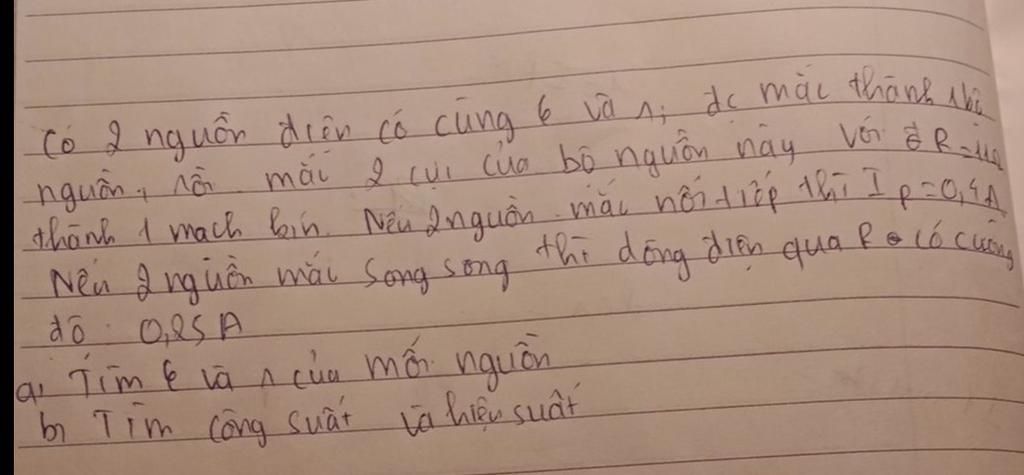 Có 2 nguồn điện có cùng ϵ và r, đc mắc thành bộ
nguồn, rồi mắc 2 cực của bộ nguồn này với R =
thành 1 mạch kín. Nếu 2 nguồn mắc nối tiếp thì I R = 0,4A
Nếu 2 nguồn mắc song song thì dòng điện qua R có cường
độ 0,25A
a, Tìm ϵ và r của mỗi nguồn
b, Tìm công suất và hiệu suất